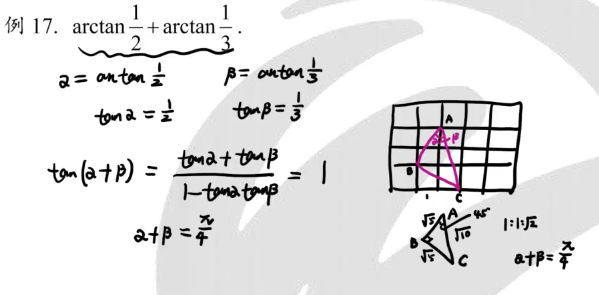 例 17. arctan 1/2 + arctan 1/3 .
α = arctan 1/2 β = arctan 1/3
tanα = 1/2 tanβ = 1/3
tan(α+β) = (tanα + tanβ)/(1 - tanα tanβ) = 1
α+β = π/4
A
α β
B
1 C
√5 A 45°
B √10 1:1:√2
√5 C α+β = π/4